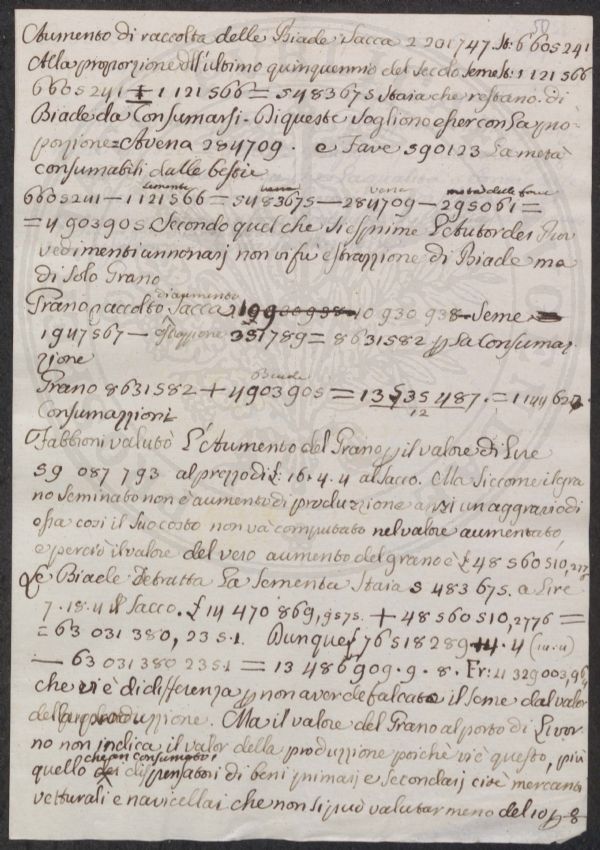 Aumento di raccolta delle Biade Sacca 2 201747. St: 6605241
Alla proporzione dll'ultimo quinquennio del Secolo Seme St: 1 121 566
6605 241 ÷ 1 121 566 = 5483675 Staia che restano di
Biade da Consumarsi. Di queste Vogliono esser con la pro-
porzione Avena 284709. e Fave 590123 La metà
consumabili dalle bestie
Semente vena metà delle fave
6605241 — 1121566 = 5483675 — 284709 — 295061 =
= 4903905 Secondo quel che si esprime l'Autor dei Prov
vedimenti annonarj non vi fu estrazzione di Biade ma
di Solo Grano
di aumento
Grano raccolto Sacca 10 930 938 — Seme
1947567 — estrazzione 351789 = 8631582 p la Consumaz
zione
Biade
Grano 8631582 + 4903905 = 13535 487. = 1144627.
Consumazzioni 12
Fabbroni valutò l'Aumento del Grano p il valore di Lire
59 087 793 al prezzo di £: 16. 4. 4 al Sacco. Ma Siccome il gra
no Seminato non è aumento di produzzione anzi un aggravio di
essa così il Suo costo non va computato nel valore aumentato,
e perciò il valore del vero aumento del grano è £ 48 560510,277
Le Biade Detratta La Sementa Staia 5 483 675. a Lire
7. 18. 4 il Sacco. £ 14 470 869,9575. + 48 56051 0,2776 =
= 63 031 380, 2351. Dunque £ 76 518 289 4. 4
— 63 031380 2351 = 13 486 909. 9. 8. Fr: 11 329 003,96
che vi è di differenza p non aver defalcato il Seme dal valor
della produzzione. Ma il valore del Grano al porto di Livor
no non indica il valor della produzzione poichè vi è questo, più
che an consumato i
quello dispensatori di beni primarj e Secondarj cioè mercanti
vetturali e navicellai che non si può valutar meno del 10 p 8